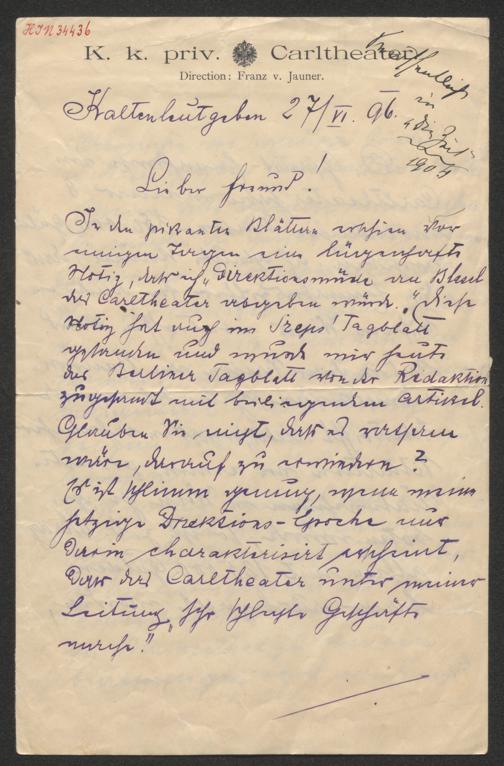 HIN 34436
K. k. priv. Carltheater.
Direction: Franz v. Jauner.
Veröffentlicht
in
"Die Zeit"
1904
Kaltenleutgeben 27/VI. 96.
Lieber Freund!
In den pikanten Blättern erschien vor
einigen Tagen eine lügenhafte
Notiz, dass ich "Direktionsmüde an Blasel
das Carltheater abgeben würde." Diese
Notiz hat auch im Szeps' Tagblatt
gestanden und wurde mir heute
das Berliner Tagblatt von der Redaktion
zugesandt mit beiliegendem Artikel.
Glauben Sie nicht, dass es ratsam
wäre, darauf zu erwiedern?
Es ist schlimm genug, wenn meine
jetzige Direktions-Epoche nur
darin charakterisirt erscheint,
dass das Carltheater unter meiner
Leitung "sehr schlechte Geschäfte
mache!"